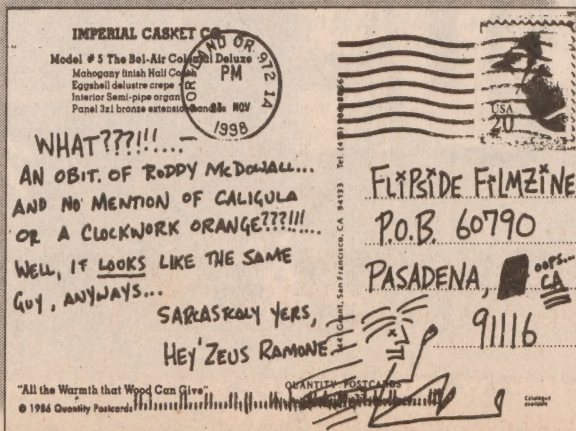 IMPERIAL CASKET CO.
Model # 5 The Bel-Air Colonial Deluxe
Mahogany finish Half
Eggshell delustre crepe
Interior Semi-pipe organ
Panel 3x1 bronze extension
PORTLAND OR. 972 14
PM
NOV
1998
USA
20
WHAT???!!!...-
AN OBIT. OF RODDY McDOWALL...
AND NO MENTION OF CALIGULA
OR A CLOCKWORK ORANGE???!!!
WELL, IT LOOKS LIKE THE SAME
GUY, ANYWAYS...
SARCASKOLY YERS,
HEY'ZEUS RAMONE
Grant, San Francisco, CA 94133 Tel.
FLiPSiDE FiLMZiNE
P.O.B. 60790
PASADENA, OOPS... CA
91116
"All the Warmth that Wood Can Give"
© 1986 Quantity Postcards
QUANTITY POSTCARDS
Catalogue
available